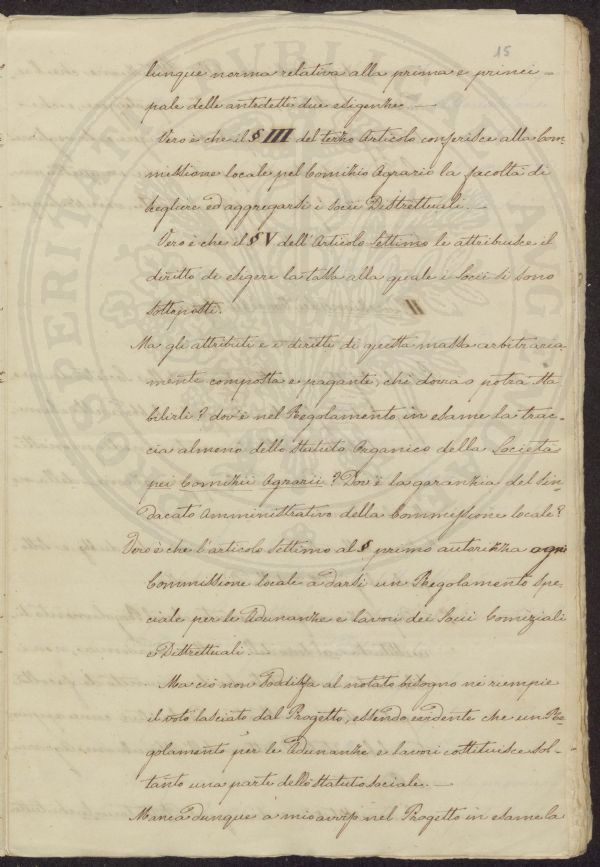 15
lunque norma relativa alla prima e princi-
pale delle antedette due esigenze. —
Vero è che il § III del terzo Articolo conferisce alla Com-
missione locale pel Comizio Agrario la facoltà di
scegliere ed aggregarsi i Socii Distrettuali. —
Vero è che il § V dell'Articolo Settimo le attribuisce il
diritto di esigere la tassa alla quale i Socii si sono
sottoposti.
Ma gli attributi e i diritti di questa massa arbitraria-
mente composta e pagante, chi dovrà o potrà sta-
bilirli? dov'è nel Regolamento in esame la trac-
cia almeno dello Statuto Organico della Società
pei Comizii Agrarii? Dov'è la garanzia del Sin-
dacato Amministrativo della Commissione locale?
Vero è che l'articolo Settimo al § primo autorizza ogni
Commissione locale a darsi un Regolamento spe-
ciale per le Adunanze e lavori dei Socii Comiziali
e Distrettuali.
Ma ciò non soddisfa al notato bisogno nè riempie
il voto lasciato dal Progetto, essendo evidente che un Re-
golamento per le Adunanze e lavori costituisce sol-
tanto una parte dello Statuto sociale. —
Manca dunque a mio avviso nel Progetto in esame la